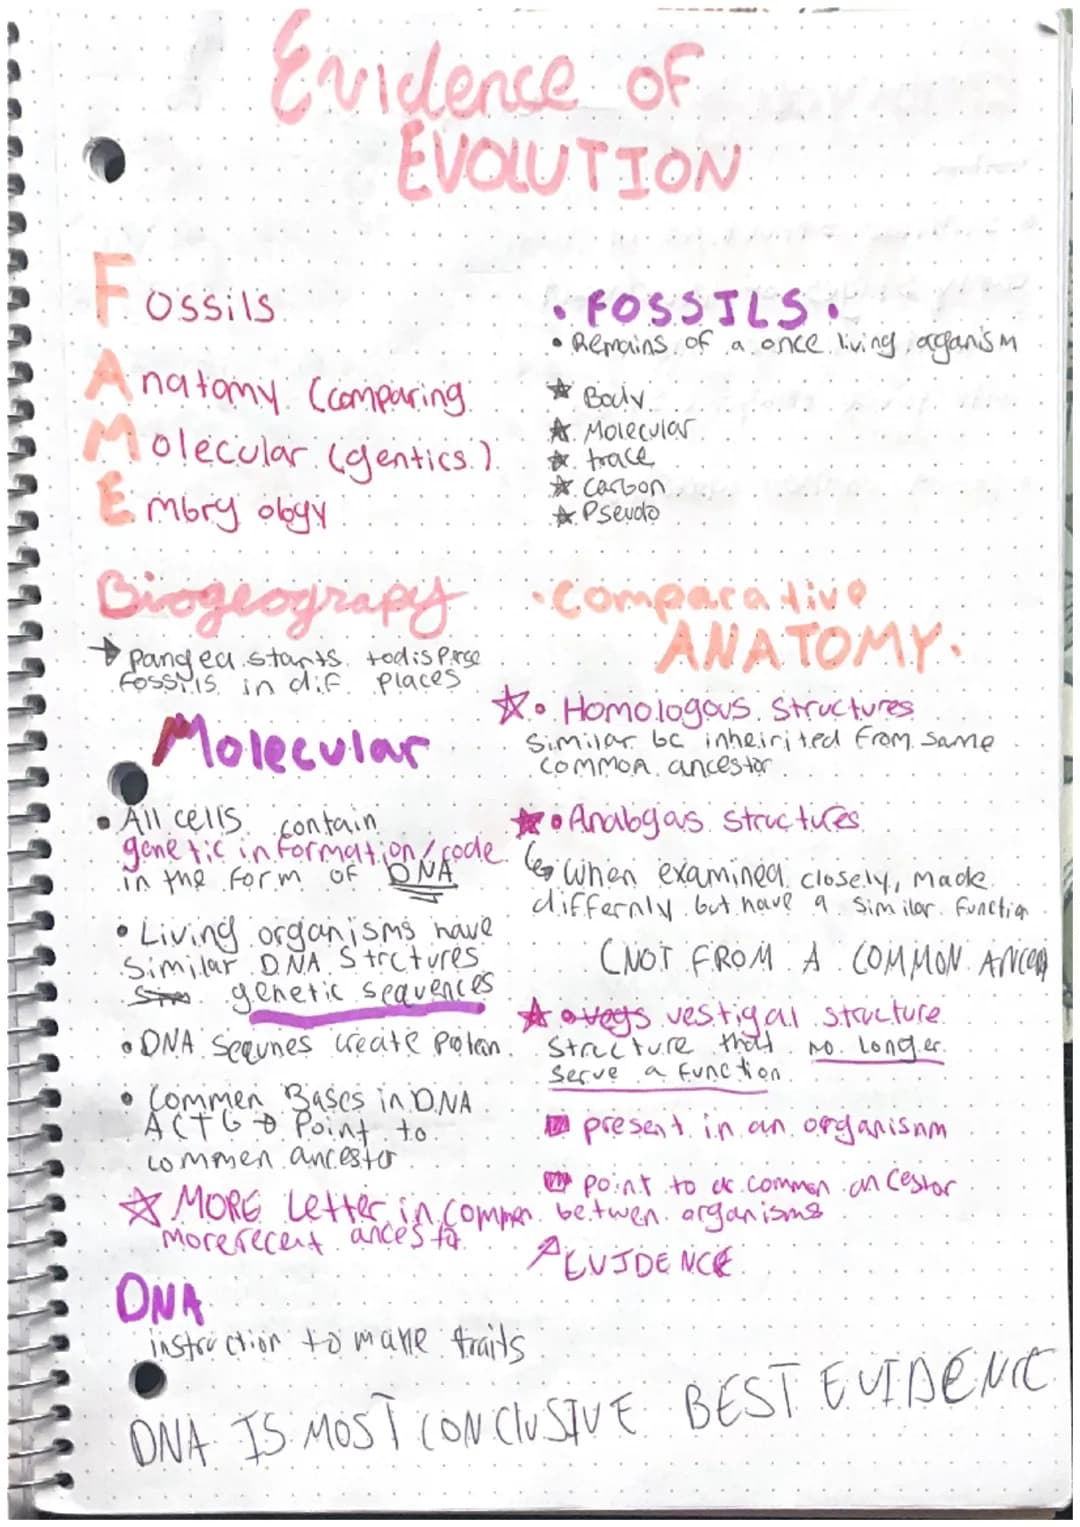 Evidence of
EVOLUTION
Fossils
Anatomy (comparing
Molecular (gentics)
Embryology
• FOSSILS •
• Remains of a once living organism
☆ Body
☆ Molecular
☆ trace
☆ carbon
☆ Pseudo
Biogeograpy
→ pangea starts to disperse
fossils in dif. places
Molecular
• All cells contain
genetic information/code
in the form of DNA
• Living organisms have
similar DNA Strctures
genetic sequences
• DNA Sequnes create Protein
• Commen Bases in DNA
ACTG → Point to
commen ancestor
☆ MORE Letter in common
more recent ancestor
DNA
instruction to make traits
• Comparative
ANATOMY •
☆ • Homologous Structures
similar bc inheirited from same
common ancestor
★ • Analogas structures
↳ When examined closely, made
differnly but have a similar function
(NOT FROM A COMMON ANCES)
☆ • vegs vestigal structure
structure that no longer
serve a function
present in an organism
point to a common ancestor
betwen organisms
↗ EVIDENCE
DNA IS MOST CONCLUSIVE BEST EVIDENCE